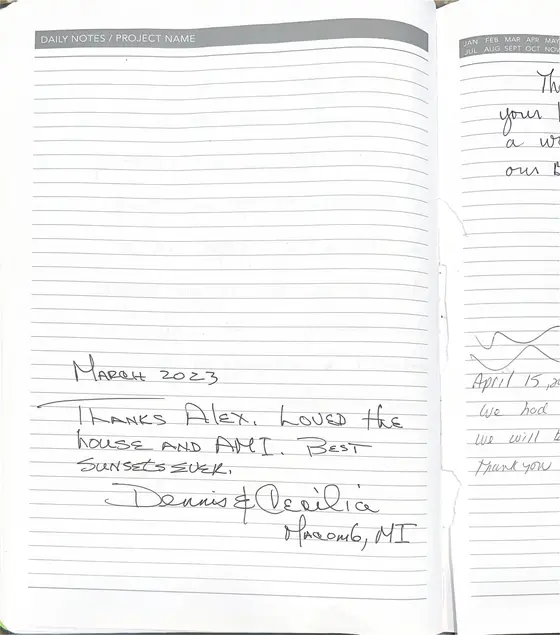 DAILY NOTES / PROJECT NAME
March 2023
Thanks Alex. Loved the
house and AMI. Best
sunsets ever.
Dennis & Cecilia
Macomb, MI
JAN FEB MAR APR MAY
JUL AUG SEPT OCT NOV
your
a
our
April 15, 20
We had
we will
Thank you